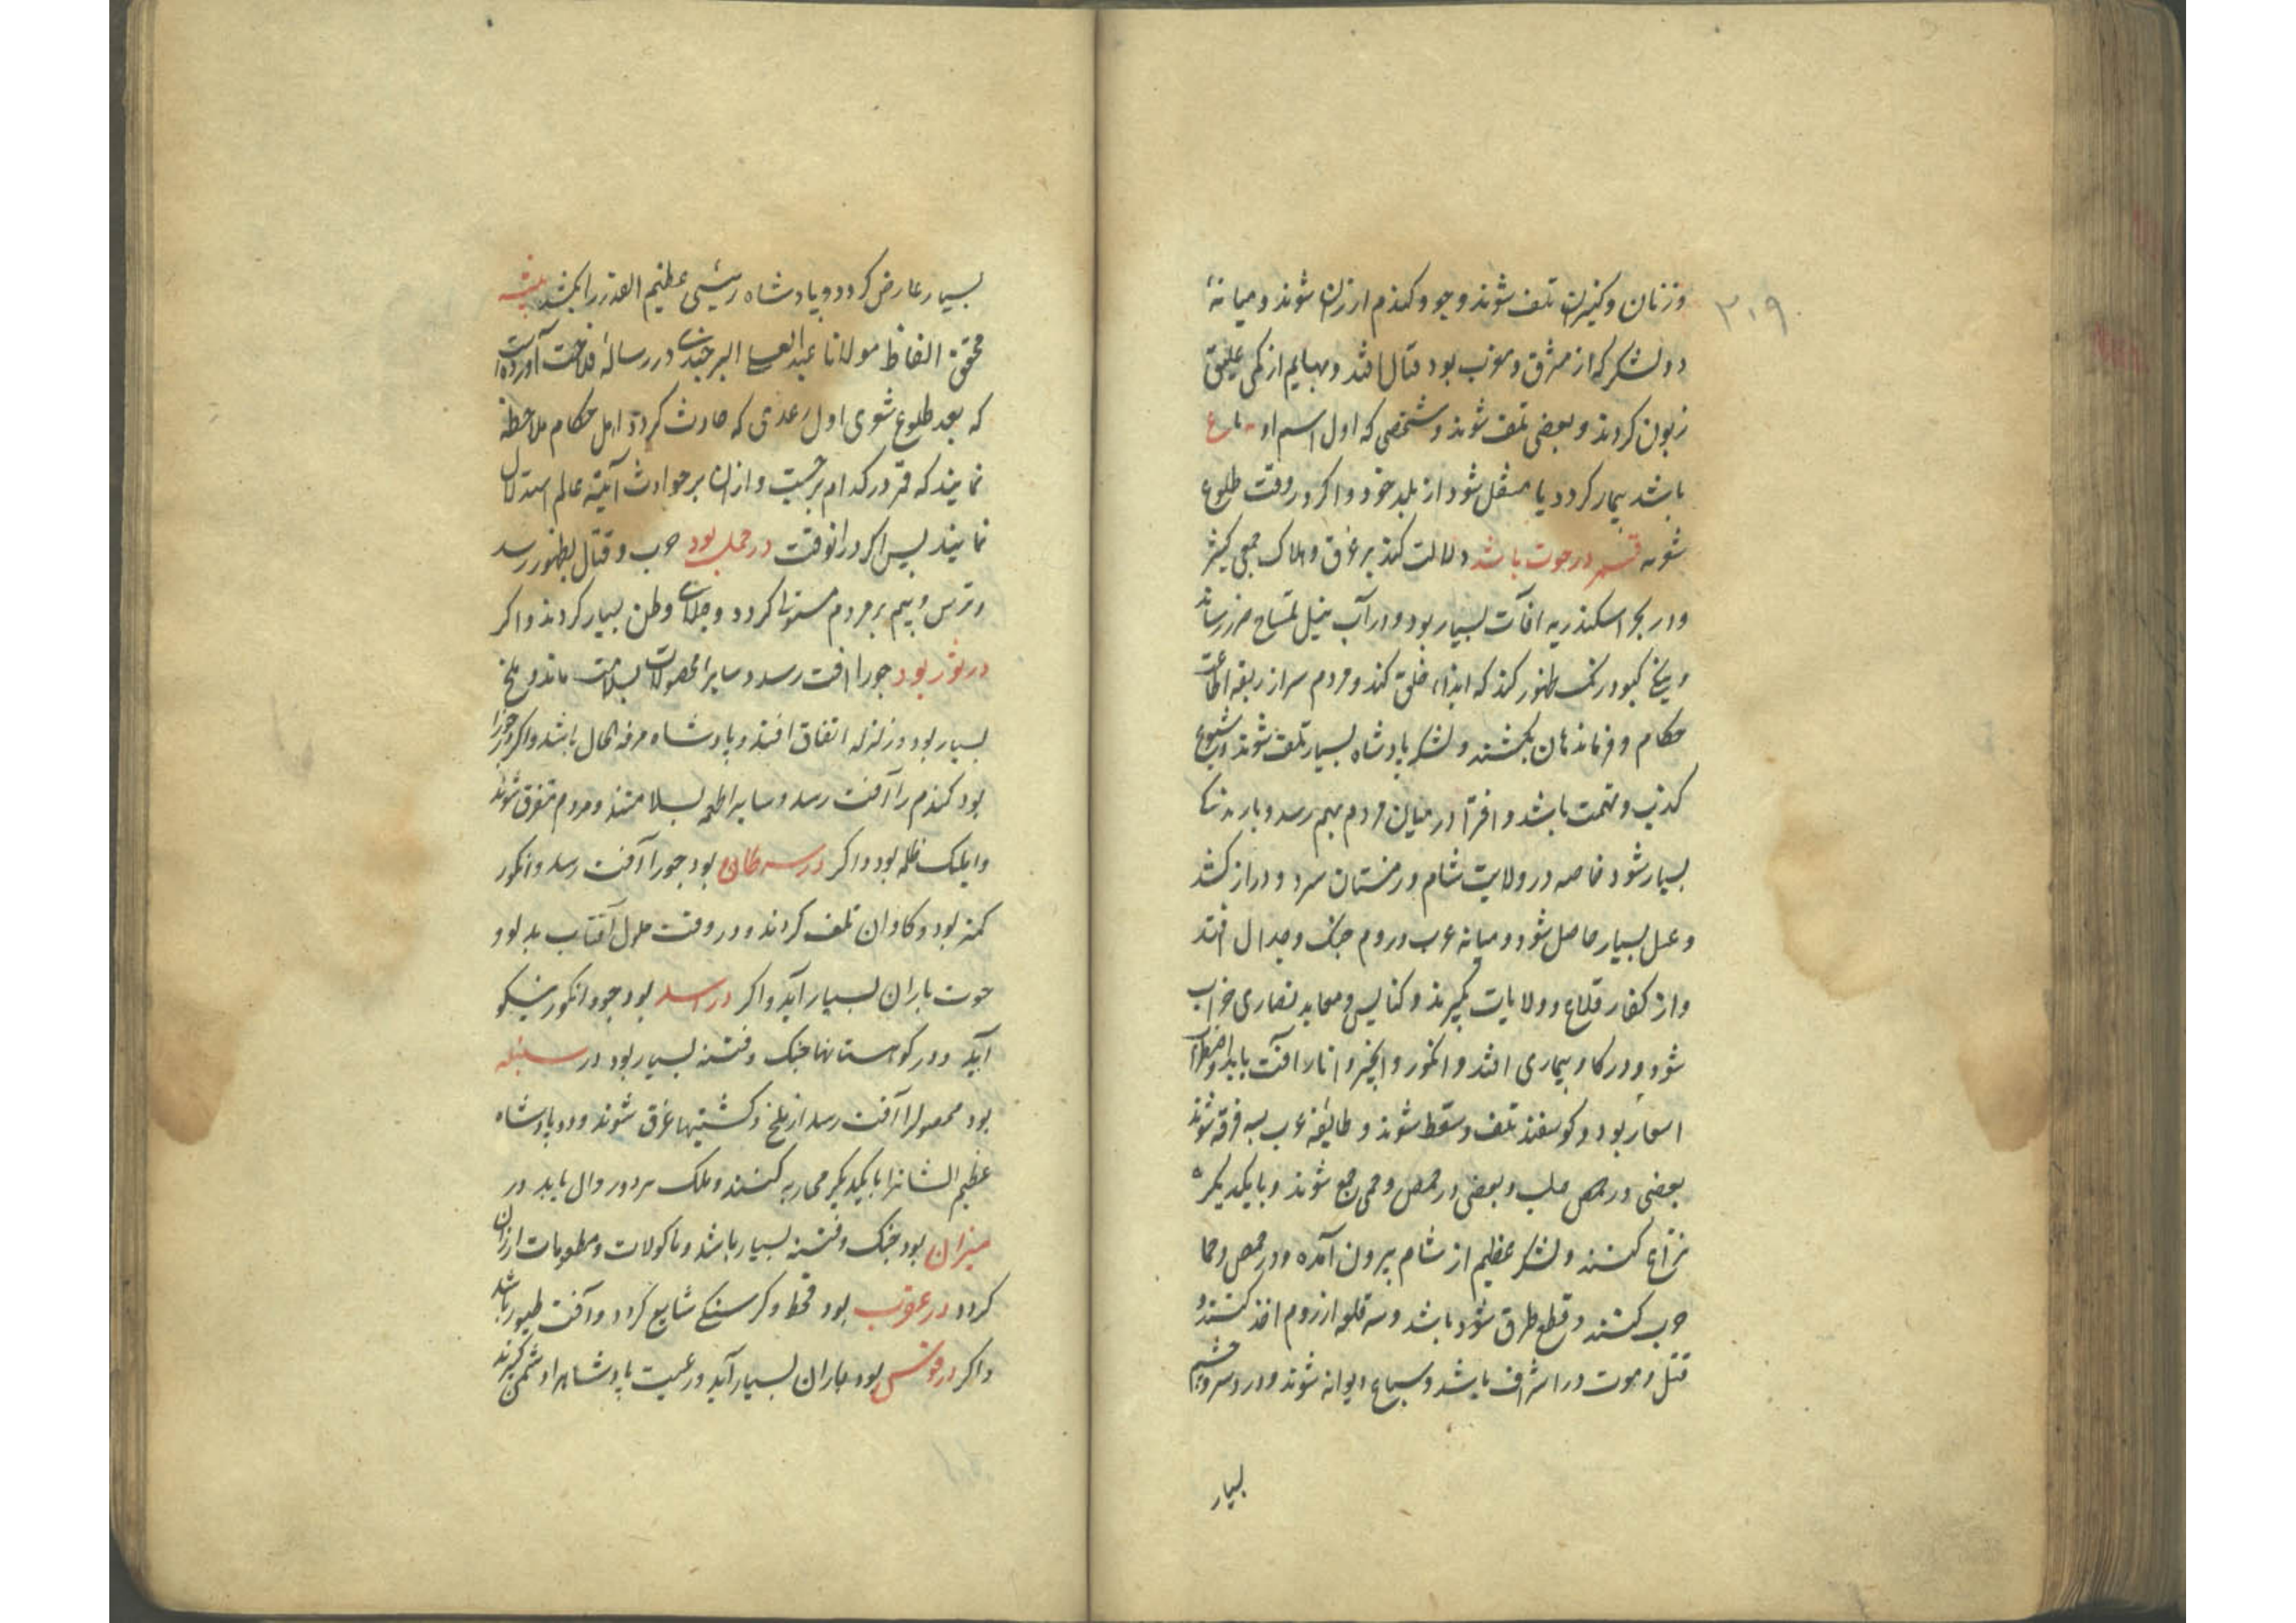 ۳۰۹
و زنان و کنیزان تلف شوند و جو و کندم ارزان شوند و میانهٔ
دو لشکر که از مشرق و مغرب بود قتال افتد و بهایم از کمی علیق
زبون کردند و بعضی تلف شوند و شخصی که اول اسم او
باشد بیمار کردد یا منتقل شود از بلد خود و اکر در وقت طلوع
قمر در حوت باشد دلالت کند بر غرق و هلاک جمعی کثیر
و در بحر اسکندریه افات بسیار بود و در آب نیل تمساح ضرر رساند
و کبود رنک ظهور کند که ایذاء خلق کند و مردم سر از ربقه اطاعت
حکام و فرماندهان بکشند و لشکر پادشاه بسیار تلف شوند و شیوع
کذب و تهمت باشد و افترا در میان مردم بهم رسد و بارندکی
بسیار شود خاصه در ولایت شام و زمستان سرد و دراز کشد
و عسل بسیار حاصل شود و میانه عرب و روم جنک و جدال افتد
و از کفار قلاع و ولایات بکیرند و کنایس و معابد نصاری خراب
شود و در کاو بیماری افتد و انکور و انجیر و انار آفت یابد و اضطراب
اسعار بود و کوسفند تلف و سقط شوند و طایفه عرب سه فرقه شوند
بعضی در حلب و بعضی در حمص و حمی جمع شوند و با یکدیکر
نزاع کنند و لشکر عظیم از شام بیرون آمده و در حمص و حما
حرب کنند و قطع طرق شود باشد و سه قلعه از روم اخذ کنند و
قتل و موت در اشراف باشد و سباع دیوانه شوند و درد سر و چشم
بسیار
بسیار عارض کردد و پادشاه رئیسی عظیم القدر را بکشد
محقق مولانا عبد العلی البرجندی در رسالهٔ فلاحت آورده است
که بعد طلوع شعری اول رعدی که حادث کردد اهل احکام ملاحظه
نمایند که قمر در کدام برجست و از ان بر حوادث آتیه عالم استدلال
نمایند پس اکر در انوقت در حمل بود حرب و قتال بظهور رسد
و ترس و بیم بر مردم مستولی کردد و جلای وطن بسیار کردند و اکر
در ثور بود جو را افت رسد و سایر محصولات بسلامت ماند و ملخ
بسیار بود و زلزله اتفاق افتد و پادشاه مرفه الحال باشد و اکر در جوزا
بود کندم را آفت رسد و سایر اطعمه بسلامتند و مردم متفرق شوند
و بود و اکر در سرطان بود جو را آفت رسد و انکور
کمتر بود و کاوان تلف کردند و در وقت حلول آفتاب بدلو و
حوت باران بسیار آید و اکر در اسد بود جو و انکور نیکو
آید و در کوهستانها جنک و فتنه بسیار بود در سنبله
بود محصول را آفت رسد از ملخ و کشتیها غرق شوند و دو پادشاه
عظیم الشان را با یکدیکر محاربه کنند و ملک هر دو زوال یابد در
میزان بود جنک و فتنه بسیار باشد و ماکولات و مطعومات ارزان
کردد در عقرب بود قحط و کرسنکی شایع کردد و آفت طیور باشد
و اکر در قوس بود باران بسیار آید و رعیت پادشاه را دشمن کیرند